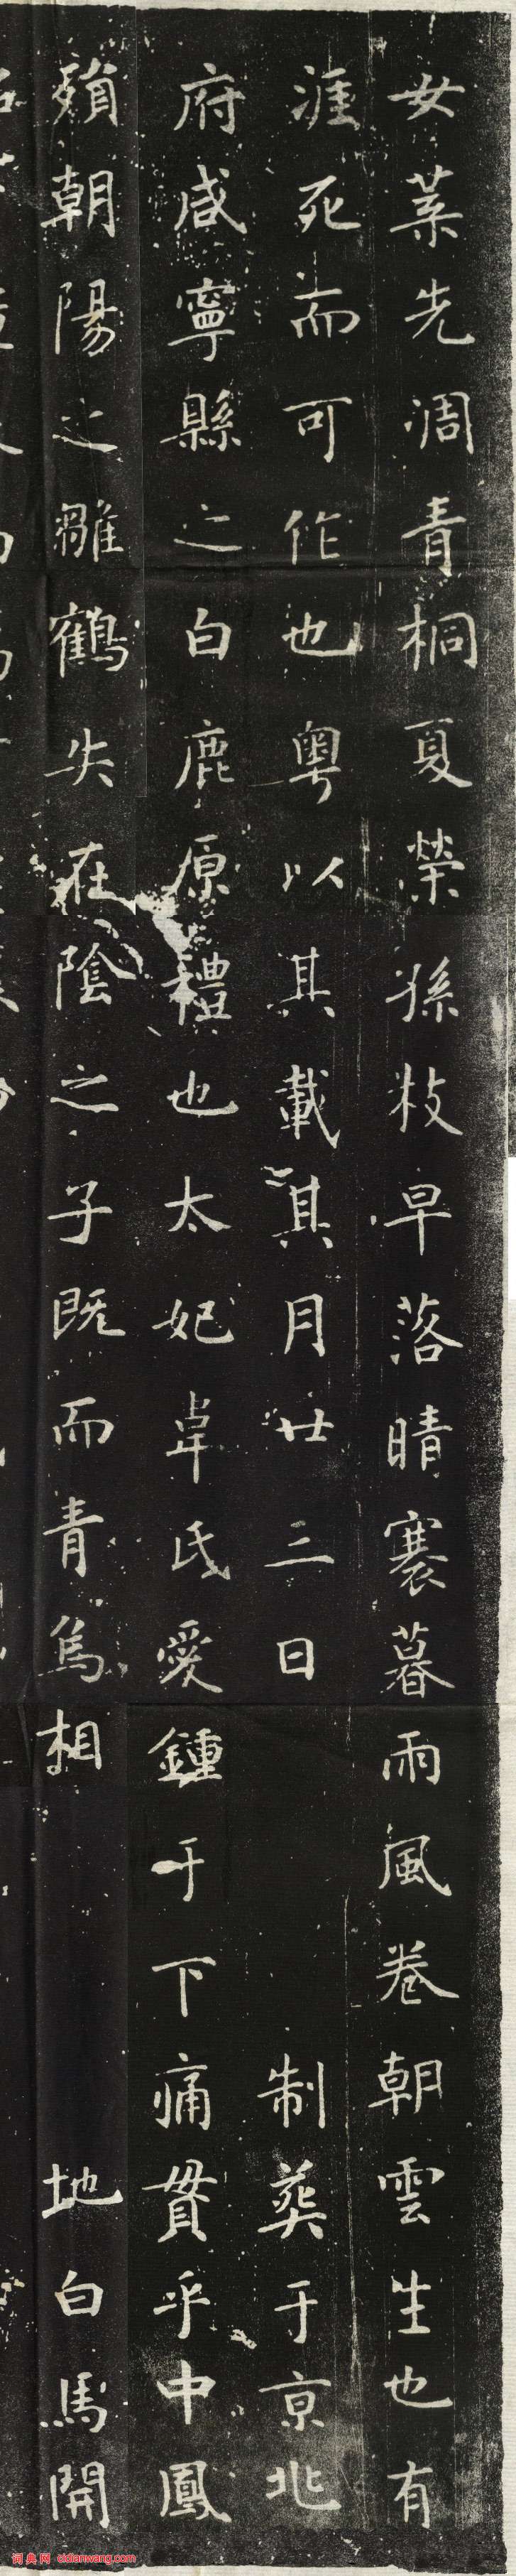 女菜先凋青桐夏榮孫枝早落晴褰暮雨風卷朝雲生也有
涯死而可作也粵以其載其月廿三日制葬于京兆
府咸寧縣之白鹿原禮也太妃韋氏愛鍾于下痛貫乎中鳳
殞朝陽之雛鶴失在陰之子既而青烏相地白馬開
词典网 cidianwang.com